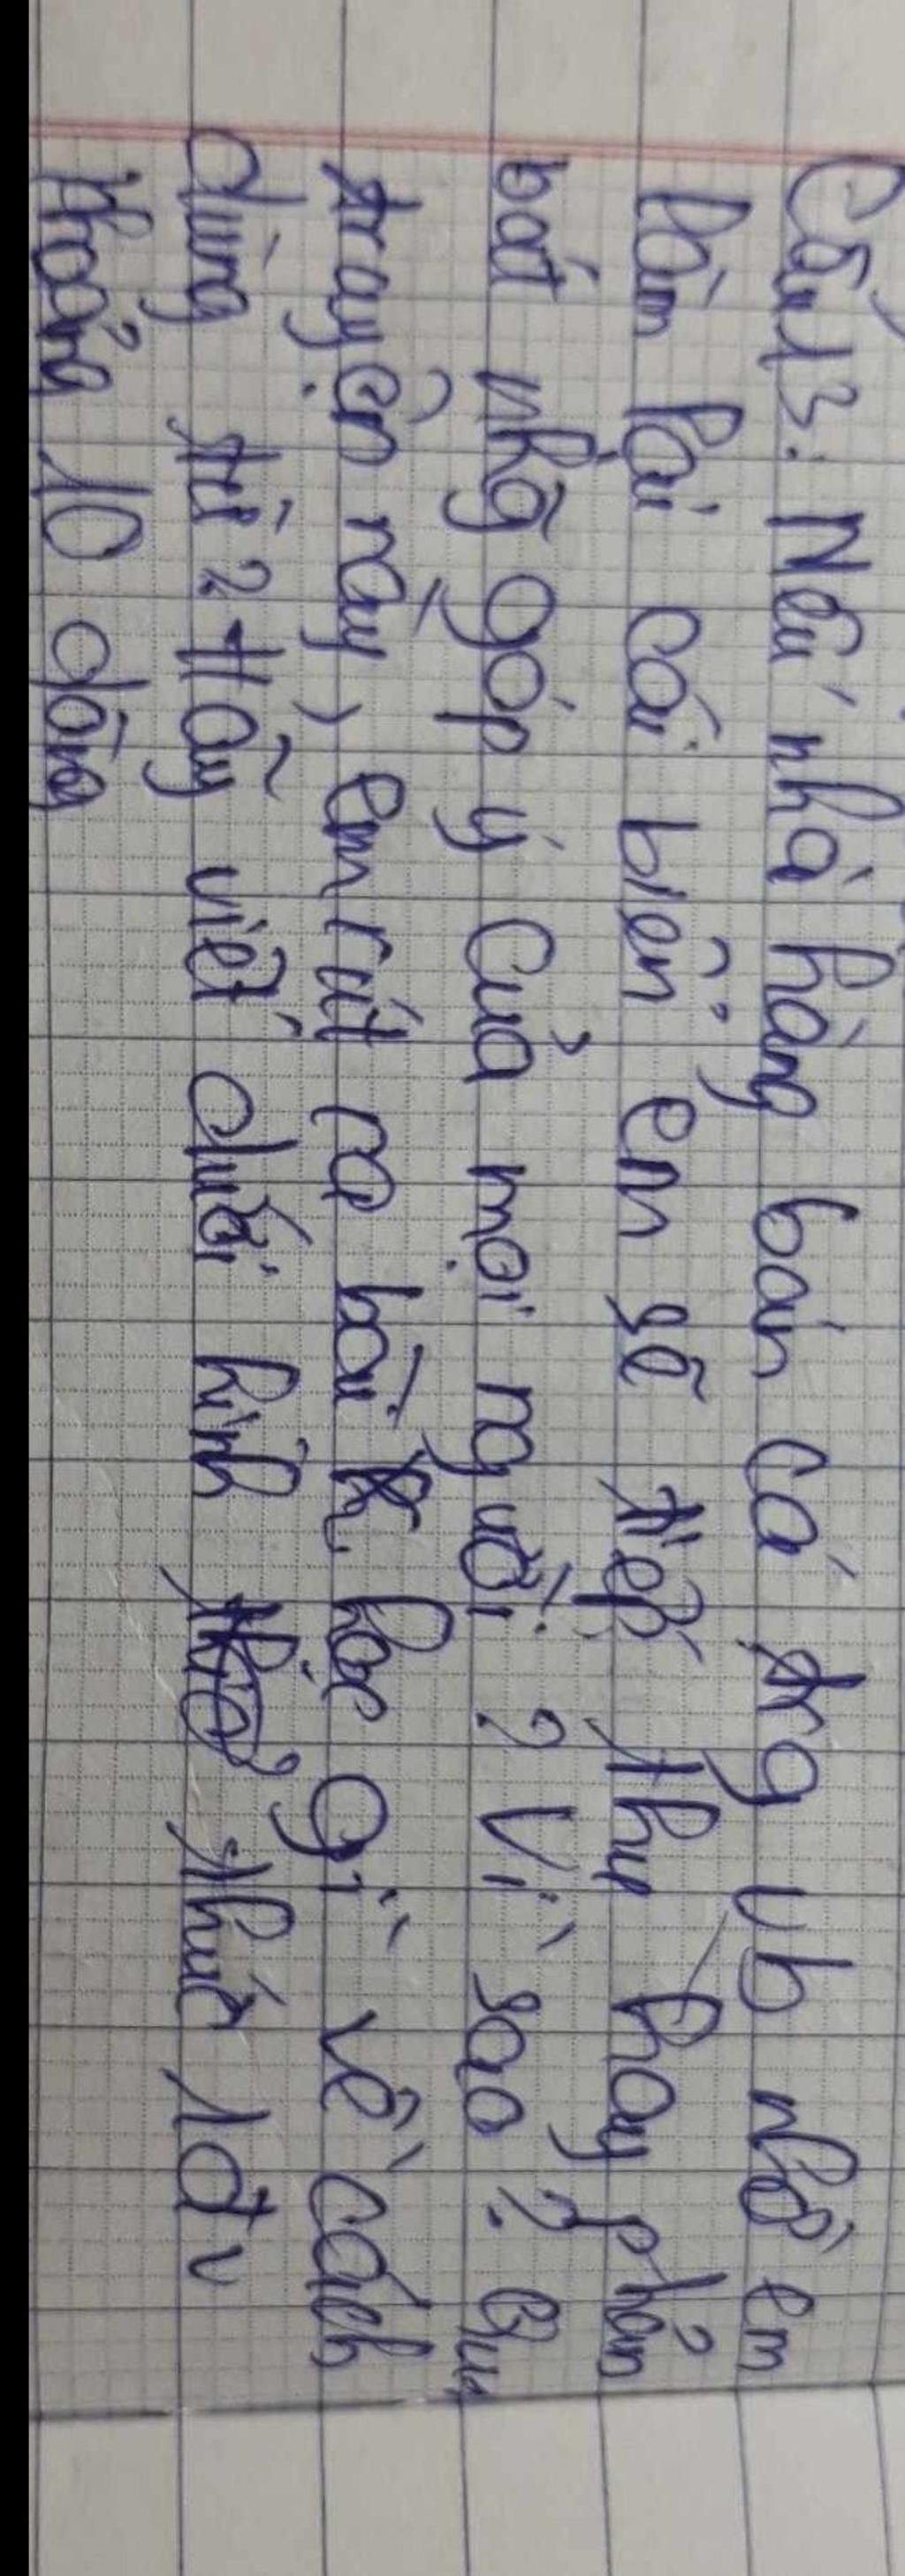 Câu 13: Nếu nhà hàng bán cá trg vb nhờ em
làm lại cái biển, em sẽ tiếp thu hay phản
bát nhg góp ý của mọi người ? Vì sao ? Qua
truyện này, em rút ra bài học gì về cách
dùng từ ? Hãy viết dưới hình thức 1 đv
khoảng 10 dòng